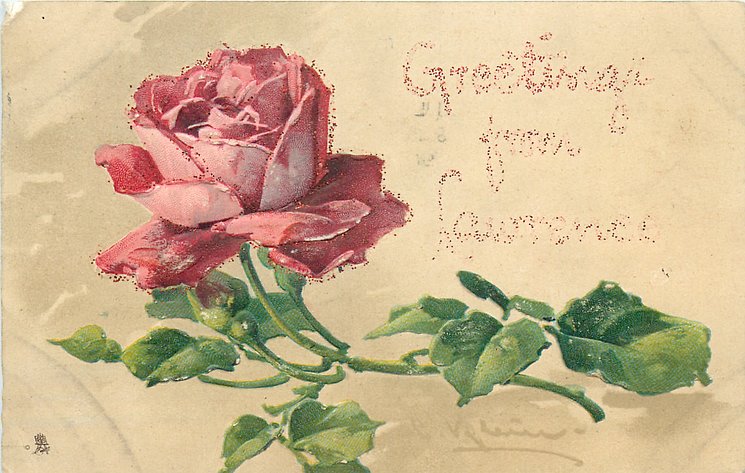 Greetings
from
Lawrence